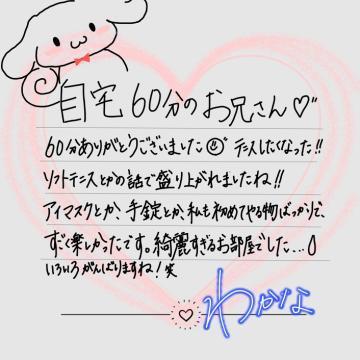 自宅60分のお兄さん♡
60分ありがとうございました テニスしたくなった!!
ソフトテニスとかの話で盛り上がれましたね!!
アイマスクとか、手錠とか、私も初めてやる物ばっかりで、
すごく楽しかったです。綺麗すぎるお部屋でした...
いろいろがんばりますね!笑
わかな